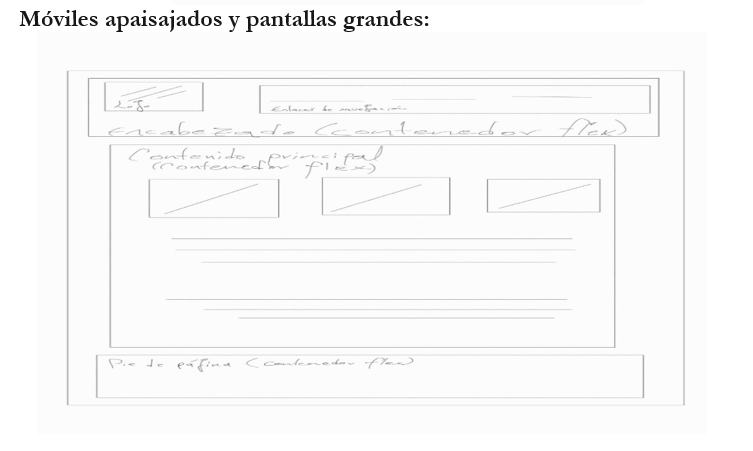 Móviles apaisajados y pantallas grandes:
Logo
Enlaces de navegación
Encabezado (contenedor flex)
Contenido principal
(Contenedor flex)
Pie de página (contenedor flex)